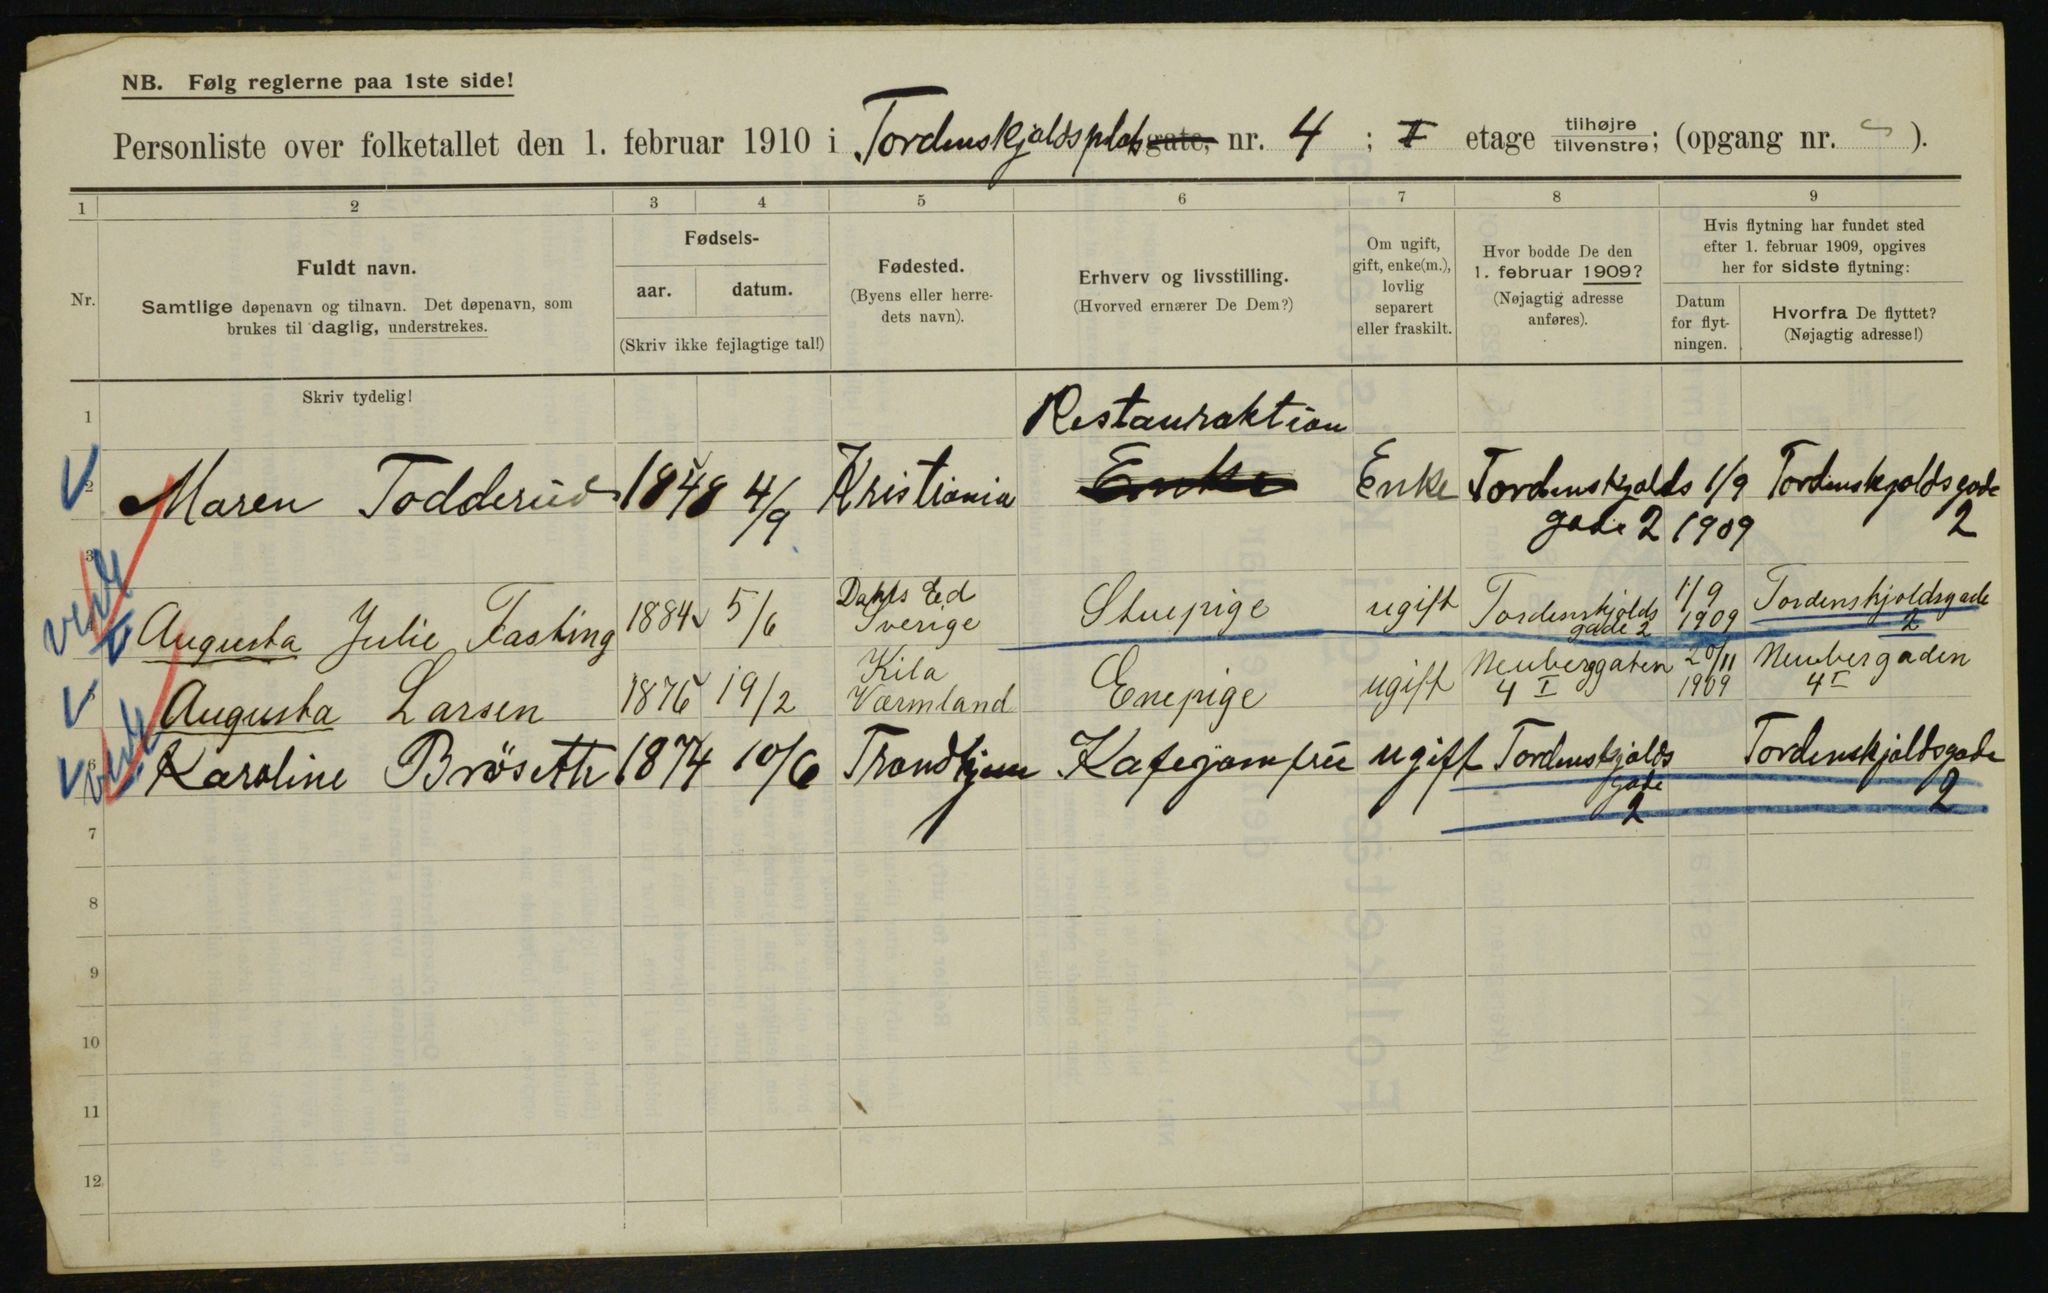 NB. Følg reglerne paa 1ste side!
Personliste over folketallet den 1. februar 1910 i Tordenskjoldsplads gate, nr. 4 ; I etage tilhøjre tilvenstre; (opgang nr. ).
1 2 3 4 5 6 7 8 9
Nr.
Fuldt navn.
Samtlige døpenavn og tilnavn. Det døpenavn, som
brukes til daglig, understrekes.
Fødsels-
aar. datum.
(Skriv ikke fejlagtige tal!)
Fødested.
(Byens eller herre-
dets navn).
Erhverv og livsstilling.
(Hvorved ernærer De Dem?)
Om ugift,
gift, enke(m.),
lovlig
separert
eller fraskilt.
Hvor bodde De den
1. februar 1909?
(Nøjagtig adresse
anføres).
Hvis flytning har fundet sted
efter 1. februar 1909, opgives
her for sidste flytning:
Datum
for flyt-
ningen.
Hvorfra De flyttet?
(Nøjagtig adresse!)
Skriv tydelig!
1 Restauraktion
2 Maren Todderud 1848 4/9 Kristiania Enke Enke Tordenskjolds 1/9 Tordenskjoldsgade
gade 2 1909 2
3
Dahls Ed
Augusta Julie Fasting 1884 5/6 Sverige Stuepige ugift Tordenskjolds 1/9 Tordenskjoldsgade
gade 2 1909 2
Kila
5 Augusta Larsen 1876 19/2 Värmland Enepige ugift Neuberggaten 20/11 Neubergaden
4 I 1909 4 I
6 Karoline Brösette 1874 10/6 Trondhjem Kafejomfru ugift Tordenskjolds Tordenskjoldsgade
gade
2 2
7
8
9
10
11
12